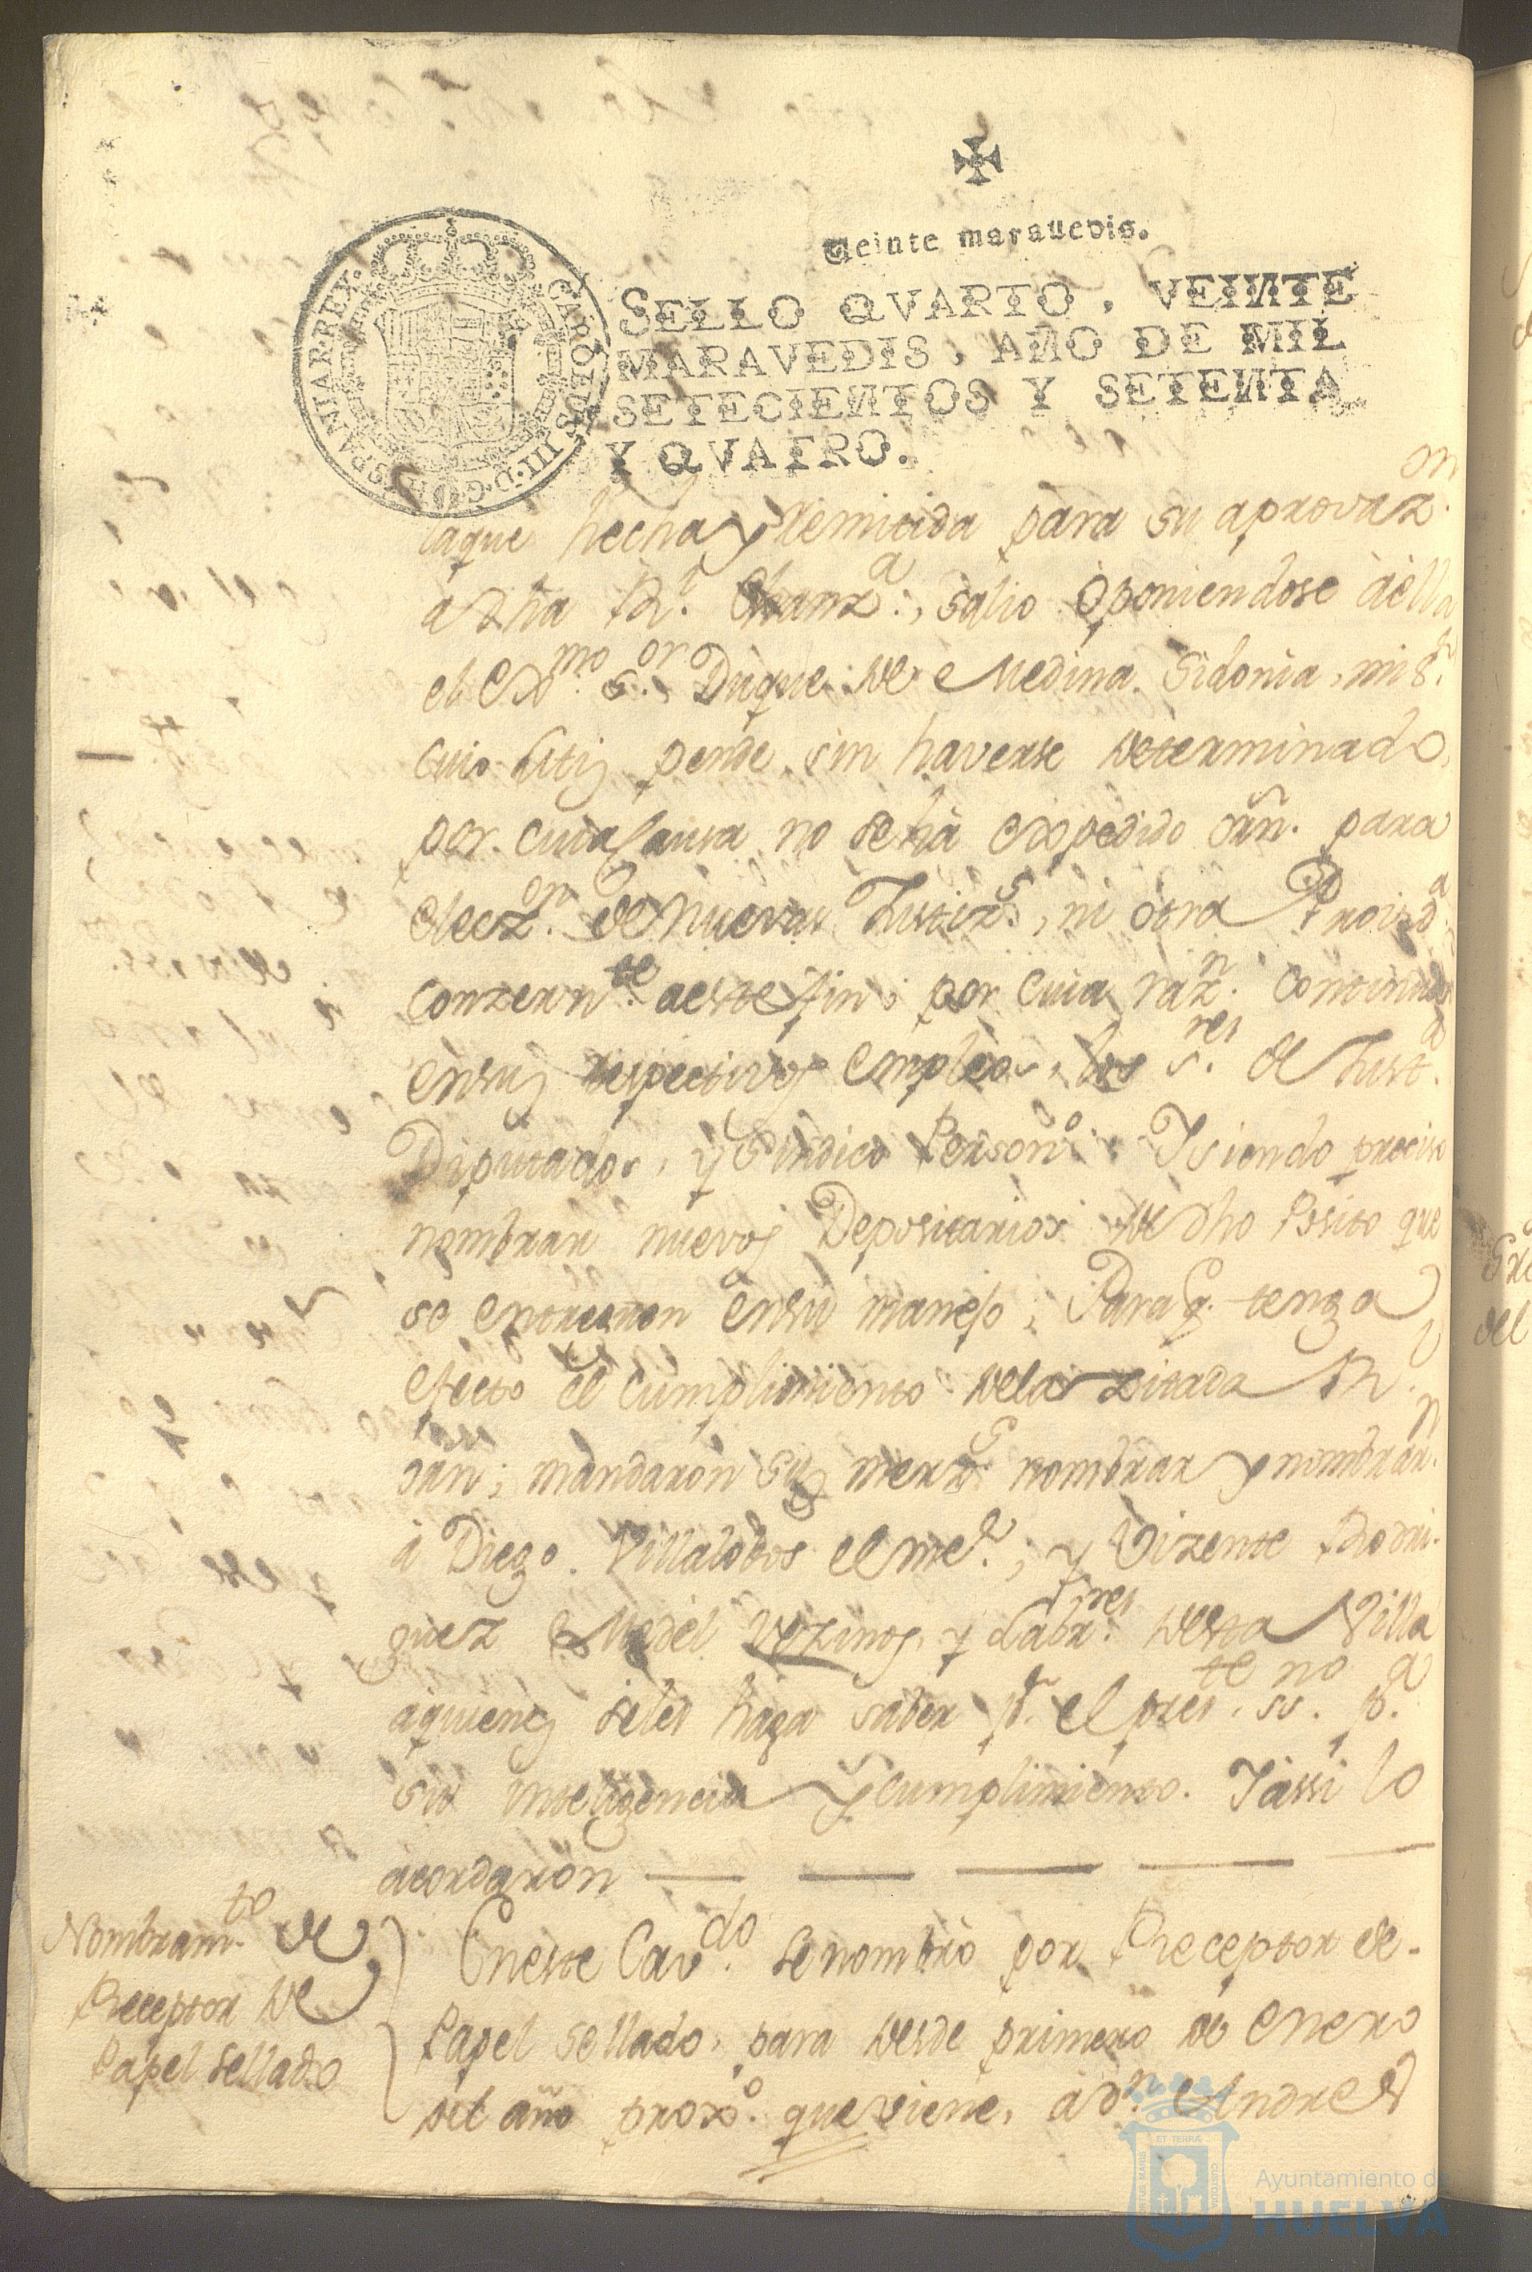 Veinte marauedis.
SELLO QVARTO, VEINTE
MARAVEDIS, AÑO DE MIL
SETECIENTOS Y SETENTA
Y QVATRO.
CAROLUS III D. G. HISPANIAR. REX.
laque hecha y Remitida para su aprovaz.on
a dha Rl. Chanz.a, salio oponiendose àella
el Exmo. s.or Duque de Medina Sidonia, mi S.r
cuio Litis pende sin haverse determinado,
por cuia Causa no se hà expedido orñ. para
elecz.on de nuevas Justizs, ni otra Provid.a
conzern.te aeste fin; por cuia raz.n continuan
ensus respectivos empleos, los s.res de Just.a
Diputados, y Sindico Person.o Y siendo preciso
nombrar nuevos Depositarios de dho Posito que
se entreguen ensu manejo; Para q. tenga
efecto el cumplimiento dela zitada Rl.
orñ; mandaron sus merz.s nombrar y nombrar.n
à Diego Villalobos el me.r; y Vizente Rodri-
guez Medel vezinos, y Labr.res desta Villa
aquienes seles haga saber p.r el pres.te ss.no p.a
su inteligencia y cumplimiento. Y assi lo
acordaron
Nombram.to de
Receptor de
Papel sellado
Eneste Cav.do se nombrò por Receptor de
Papel sellado, para desde primero de Enero
del año prox.o que viene, a d.n Andres
Ayuntamiento de
HUELVA